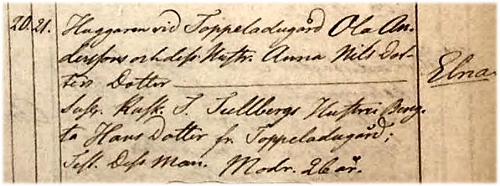 20. 21. Huggaren vid Toppeladugård Ola An-
derssons och dess Hustr. Anna Nils Dot-
ters Dotter
Elna
Susc. Rusth. T. Tullbergs Hustru Beng-
ta Hans Dotter fr. Toppeladugård;
Test. Dess Man. Modr. 26 år.